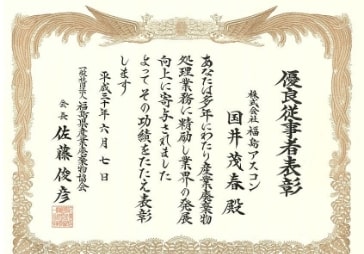 優良従事者表彰
株式会社 福島アスコン
国井茂春 殿
あなたは多年にわたり産業廃棄物
処理業務に精励し業界の発展
向上に寄与されました
よってその功績をたたえ表彰
します
平成三十年六月七日
一般社団法人 福島県産業廃棄物協会
会長 佐藤俊彦